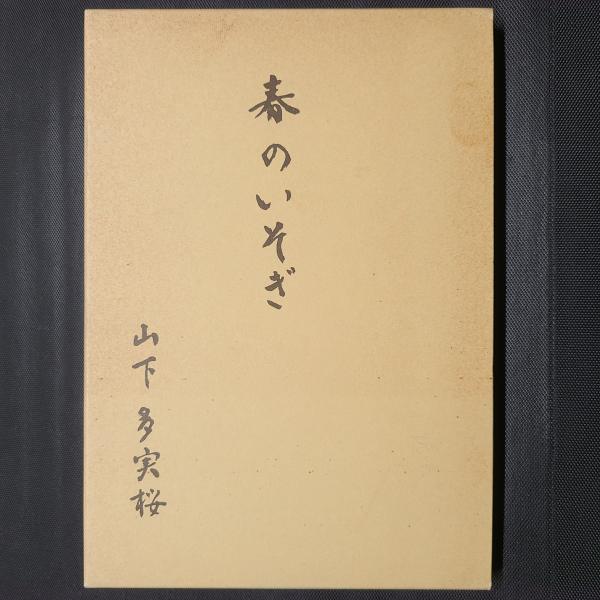 春のいそぎ
山下多実桜